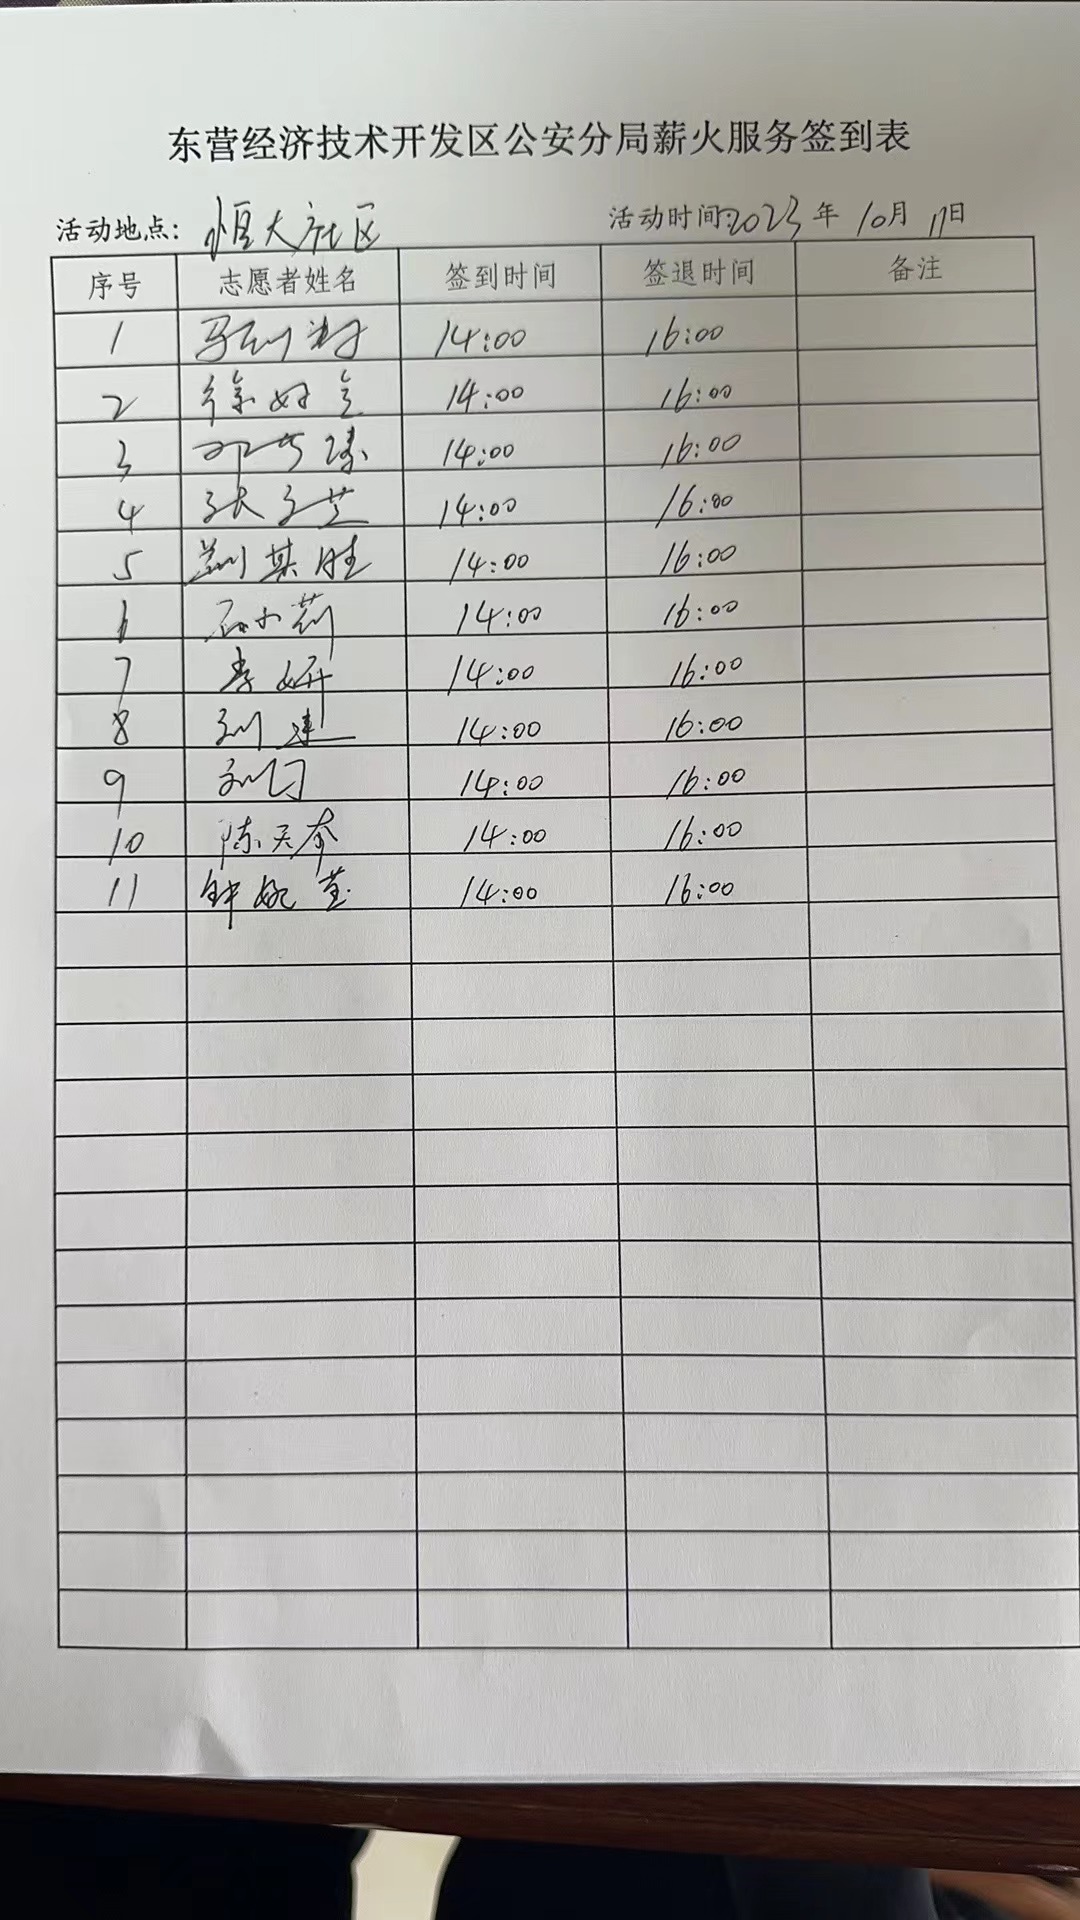 东营经济技术开发区公安分局薪火服务签到表
活动地点: 恒大社区 活动时间: 2023年 10月 17日
序号 志愿者姓名 签到时间 签退时间 备注
1 14:00 16:00
2 徐 14:00 16:00
3 邓 14:00 16:00
4 张子芝 14:00 16:00
5 荆其胜 14:00 16:00
6 石小莉 14:00 16:00
7 李妍 14:00 16:00
8 刘建 14:00 16:00
9 刘 14:00 16:00
10 陈天奇 14:00 16:00
11 钟婉莹 14:00 16:00